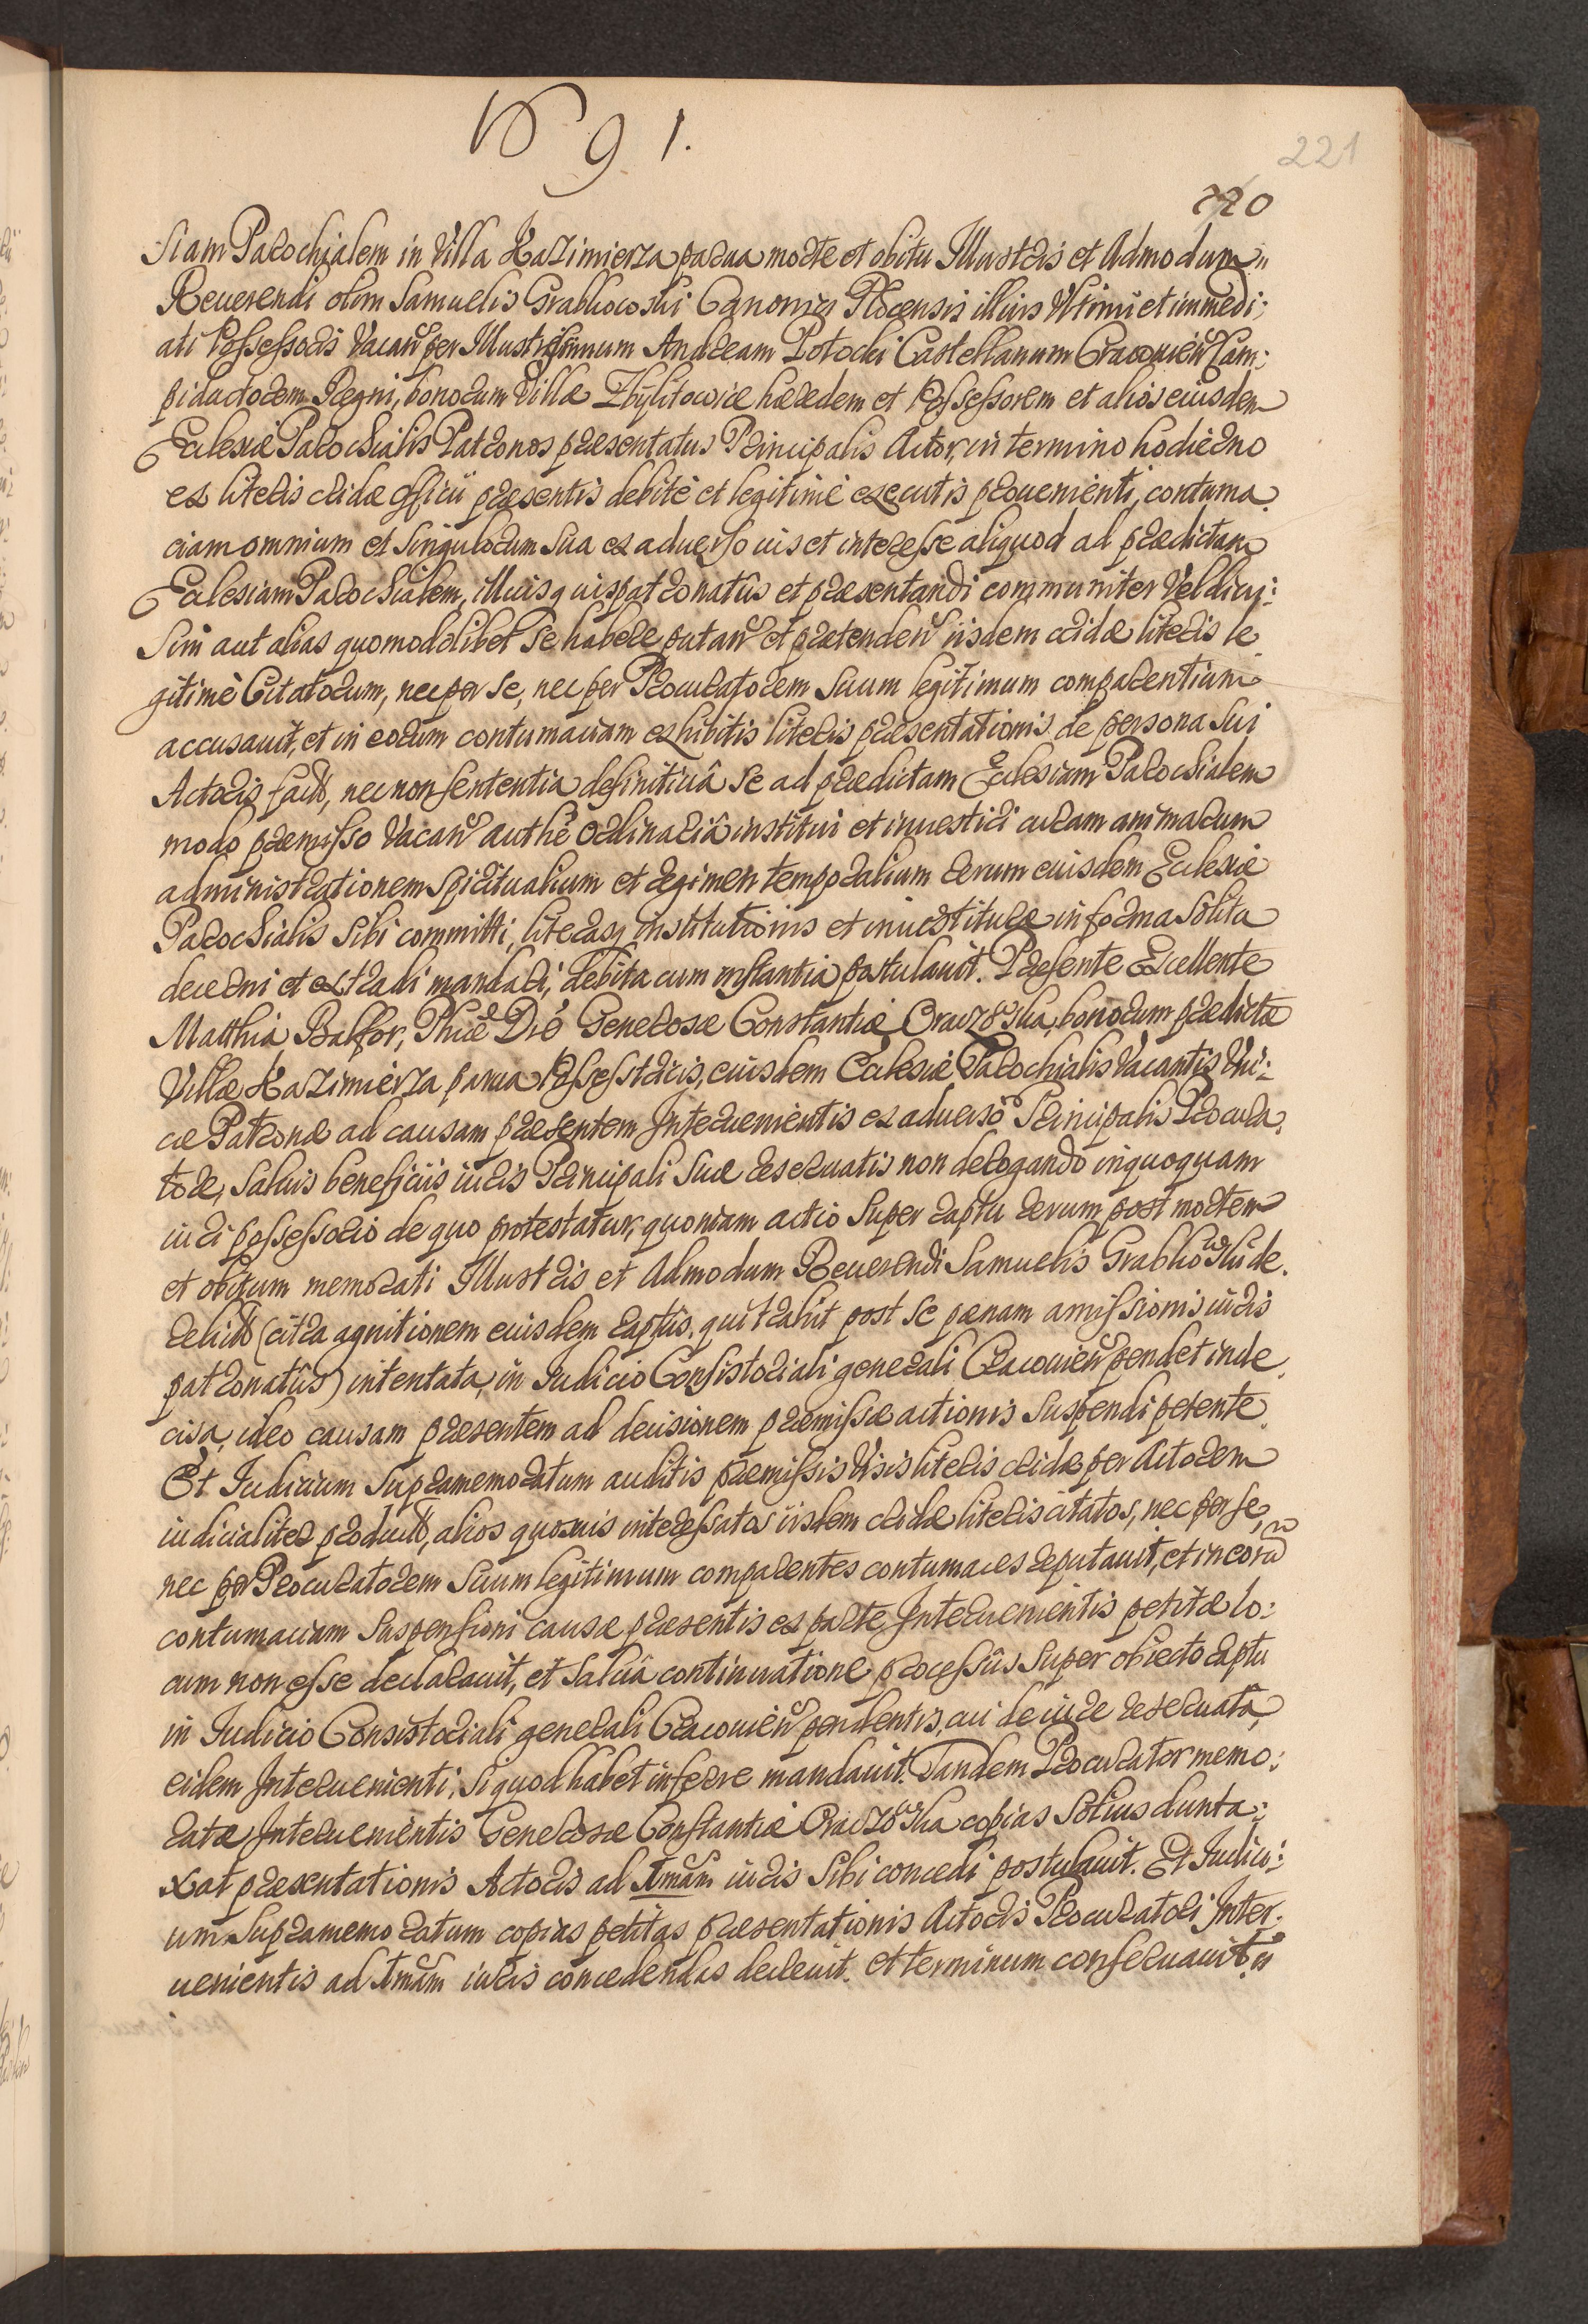 No 91.
221
220
siam Parochialem in Villa Kazimierza parua morte et obitu Illustris et Admodum
Reuerendi olim Samuelis Grabkowski Canonici Plocensis illius Vltimi et immedi:
ati Possessoris Vacañ per Illustrissimum Andream Potocki Castellanum Cracouieñ Cam:
piductorem Regni, bonorum Villæ Zbylitowice hæredem et Possessorem et alios eiusdem
Eclesiæ Parochialis Patronos præsentatus Principalis Actor, in termino hodierno
ex literis cridæ officii præsentis debitè et legitimè executis proueniēnti, contuma
ciam omnium et singulorum sua ex aduerso ius et interesse aliquod ad prædictam
Eclesiam Parochialem, illiusq iuispatronatûs et præsentandi communiter Vel diui:
sim aut alias quomodolibet se habere putañ et prætendeñ iisdem cridæ literis le
gitimè Citatorum, nec per se, nec per Procuratorem suum legitimum comparentium
accusauit, et in eorum contumaciam exhibitis literis præsentationis de persona sui
Actoris factæ, nec non sententia definitiuâ se ad prædictam Eclesiam Parochialem
modo præmisso Vacañ authē Ordinariâ institui et inuestiri curam animarum
administrationem spiritualium et regimen temporalium rerum eiusdem Eclesiæ
Parochialis sibi committi, literasq institutionis et inuestituræ in forma solita
decerni et extradi mandari, debita cum instantia postulauit. Præsente Excellente
Matthia Balfor, Phiæ Dré Generosæ Constantiæ Oraczowska, bonorum prædictæ
Villæ Kazimierza parua Possessricis, eiusdem Eclesiæ Parochialis Vacantis Vni:
cæ Patronæ ad causam præsentem Interuenientis ex aduerso Principalis Procura
tore, saluis beneficiis iuris Principali suæ reseruatis non derogando inquoquam
iuri possessorio de quo protestatur, quoniam actio super raptu rerum post mortem
et obitum memorati Illustris et Admodum Reuerendi Samuelis Grabkowski de
relictæ (citra agnitionem eiusdem raptûs, qui trahit post se pænam amissionis iuris
patronatûs) intentata, in Iudicio Consistoriali generali Cracouieñ pendet inde
cisa, ideo causam præsentem ad decisionem præmissæ actionis suspendi petente.
Et Iudicium supramemoratum auditis præmissis Visis literis cridæ per Actorem
iudicialiter productæ, alios quosuis interessatos iisdem cridæ literis citatos, nec per se,
nec per Procuratorem suum legitimum comparentes contumaces reputauit, et in eorū
contumaciam suspensioni causæ præsentis ex parte Interuenientis petitæ lo:
cum non esse declarauit, et saluâ continuatione processûs super obiecto raptu
in Iudicio Consistoriali generali Cracouieñ pendentis, cui de iure reseruatâ,
eidem Interuenienti, si quod habet inferre mandauit. Tandem Procurator memo:
ratæ Interuenientis Generosæ Constantiæ Oraczowska copias solius dunta:
xat præsentationis Actoris ad Amam iuris sibi concedi postulauit. Et Iudici:
um supramemoratum copias petitas præsentationis Actoris Procuratori Inter:
uenientis ad Amam iuris concedendas decreuit. et terminum conseruauit